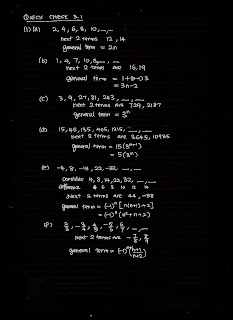 QUICK CHECK 3.1
(1) (a) 2, 4, 6, 8, 10, __, __
next 2 terms 12, 14
general term = 2n
(b) 1, 4, 7, 10, 13, __, __
next 2 terms are 16, 19
general term = 1+(n-1)3
= 3n-2
(c) 3, 9, 27, 81, 243, __, __
next 2 terms are 729, 2187
general term = 3ⁿ
(d) 15, 45, 135, 405, 1215, __, __
next 2 terms are 3645, 10935
general term = 15(3ⁿ⁻¹)
= 5(3ⁿ)
(e) -4, 8, -14, 22, -32, __, __
consider 4, 8, 14, 22, 32, __, __
difference 4 6 8 10 12 14
next 2 terms are 44, -58
general term = (-1)ⁿ [n(n+1)+2]
= (-1)ⁿ (n²+n+2)
next 2 terms are
general term =